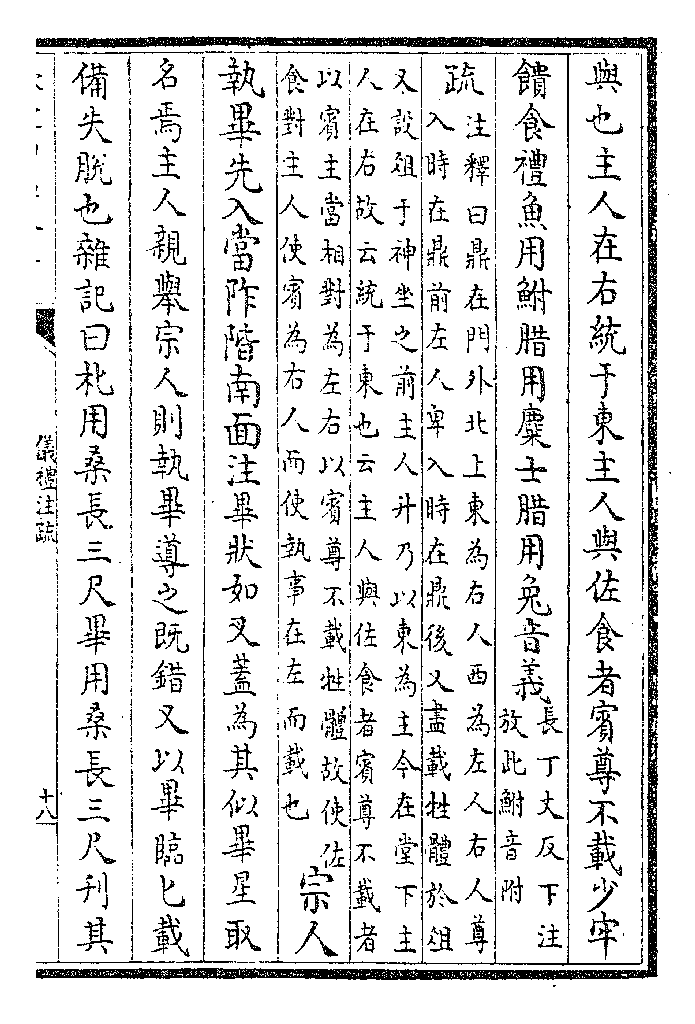 與也主人在右統于東主人與佐食者賓尊不載少牢
饋食禮魚用鮒腊用麋士腊用兔音義長丁丈反下注
放此鮒音附
疏注釋曰鼎在門外北上東為右人西為左人右人尊
入時在鼎前左人卑入時在鼎後又盡載牲體於俎
又設俎于神坐之前主人升乃以東為主今在堂下主
人在右故云統于東也云主人與佐食者賓尊不載者
以賓主當相對為左右以賓尊不載牲體故使佐
食對主人使賓為右人而使執事在左而載也
宗人
執畢先入當阼階南面注畢狀如叉蓋為其似畢星取
名焉主人親舉宗人則執畢導之既錯又以畢臨匕載
備失脫也雜記曰朼用桑長三尺畢用桑長三尺刊其
儀禮注疏
十八